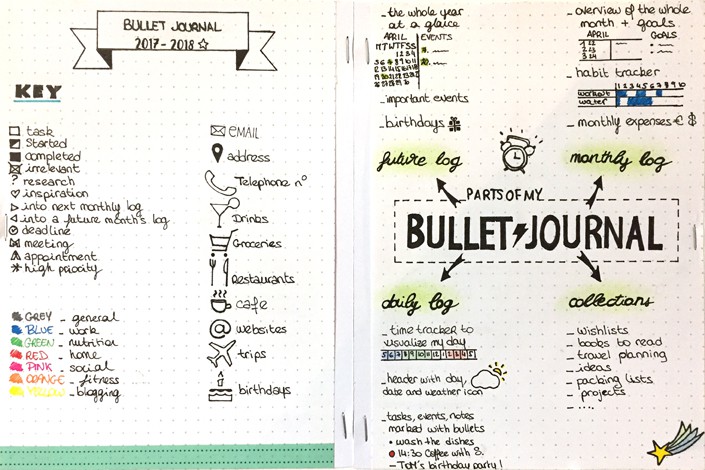 BULLET JOURNAL
2017-2018
KEY
task
Started
completed
irrelevant
? research
inspiration
into next monthly log
into a future month's log
deadline
meeting
appointment
* high priority
GREY - general
BLUE - work
GREEN - nutrition
RED - home
PINK - social
ORANGE - fitness
YELLOW - blogging
EMAIL
address
Telephone n°
Drinks
Groceries
Restaurants
cafe
@ websites
trips
birthdays
- the whole year
at a glance
APRIL EVENTS
M T W T F S S
- important events
- birthdays
future log
- overview of the whole
month + goals
APRIL GOALS
- habit tracker
1 2 3 4 5 6 7 8 9 10
workout
water
- monthly expenses € $
monthly log
PARTS OF MY
BULLET JOURNAL
daily log
- time tracker to
visualize my day
5 6 7 8 9 10 11 12 1 2 3 4 5
- header with day,
date and weather icon
- tasks, events, notes
marked with bullets
• wash the dishes
• 14:30 Coffee with S.
- Tom's birthday party!
collections
- wishlists
- books to read
- travel planning
- ideas
- packing lists
- projects
- ....